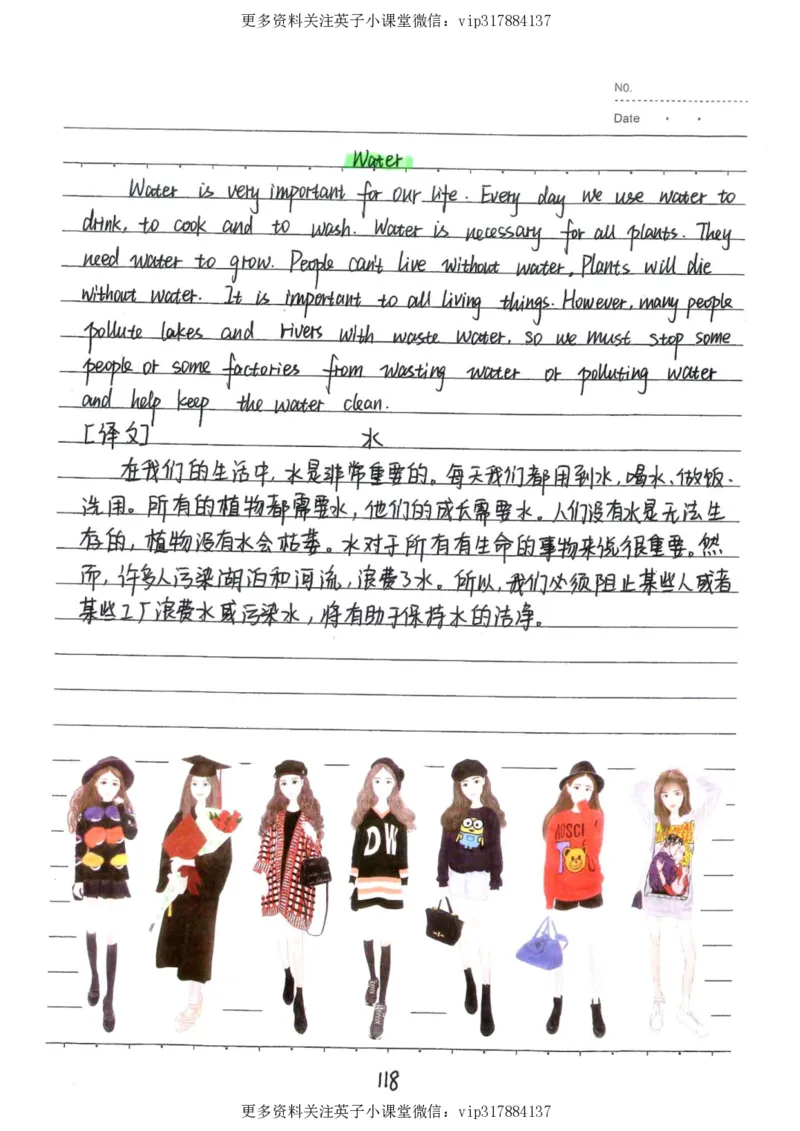 更多资料关注英子小课堂微信：vip317884137
N0.
Date
Water
Water is very important for our life. Every day we use water to
drink, to cook and to wash. Water is necessary for all plants. They
need water to grow. People can't live without water, Plants will die
without water. It is important to all living things. However, many people
pollute lakes and rivers with waste water, so we must stop some
people or some factories from wasting water or polluting water
and help keep the water clean.
[译文] 水
在我们的生活中，水是非常重要的。每天我们都用到水，喝水、做饭、
洗用。所有的植物都需要水，他们的成长需要水。人们没有水是无法生
存的，植物没有水会枯萎。水对于所有有生命的事物来说很重要。然
而，许多人污染湖泊和河流，浪费了水。所以，我们必须阻止某些人或者
某些工厂浪费水或污染水，将有助于保持水的洁净。
DW
MOSCI
118
更多资料关注英子小课堂微信：vip317884137